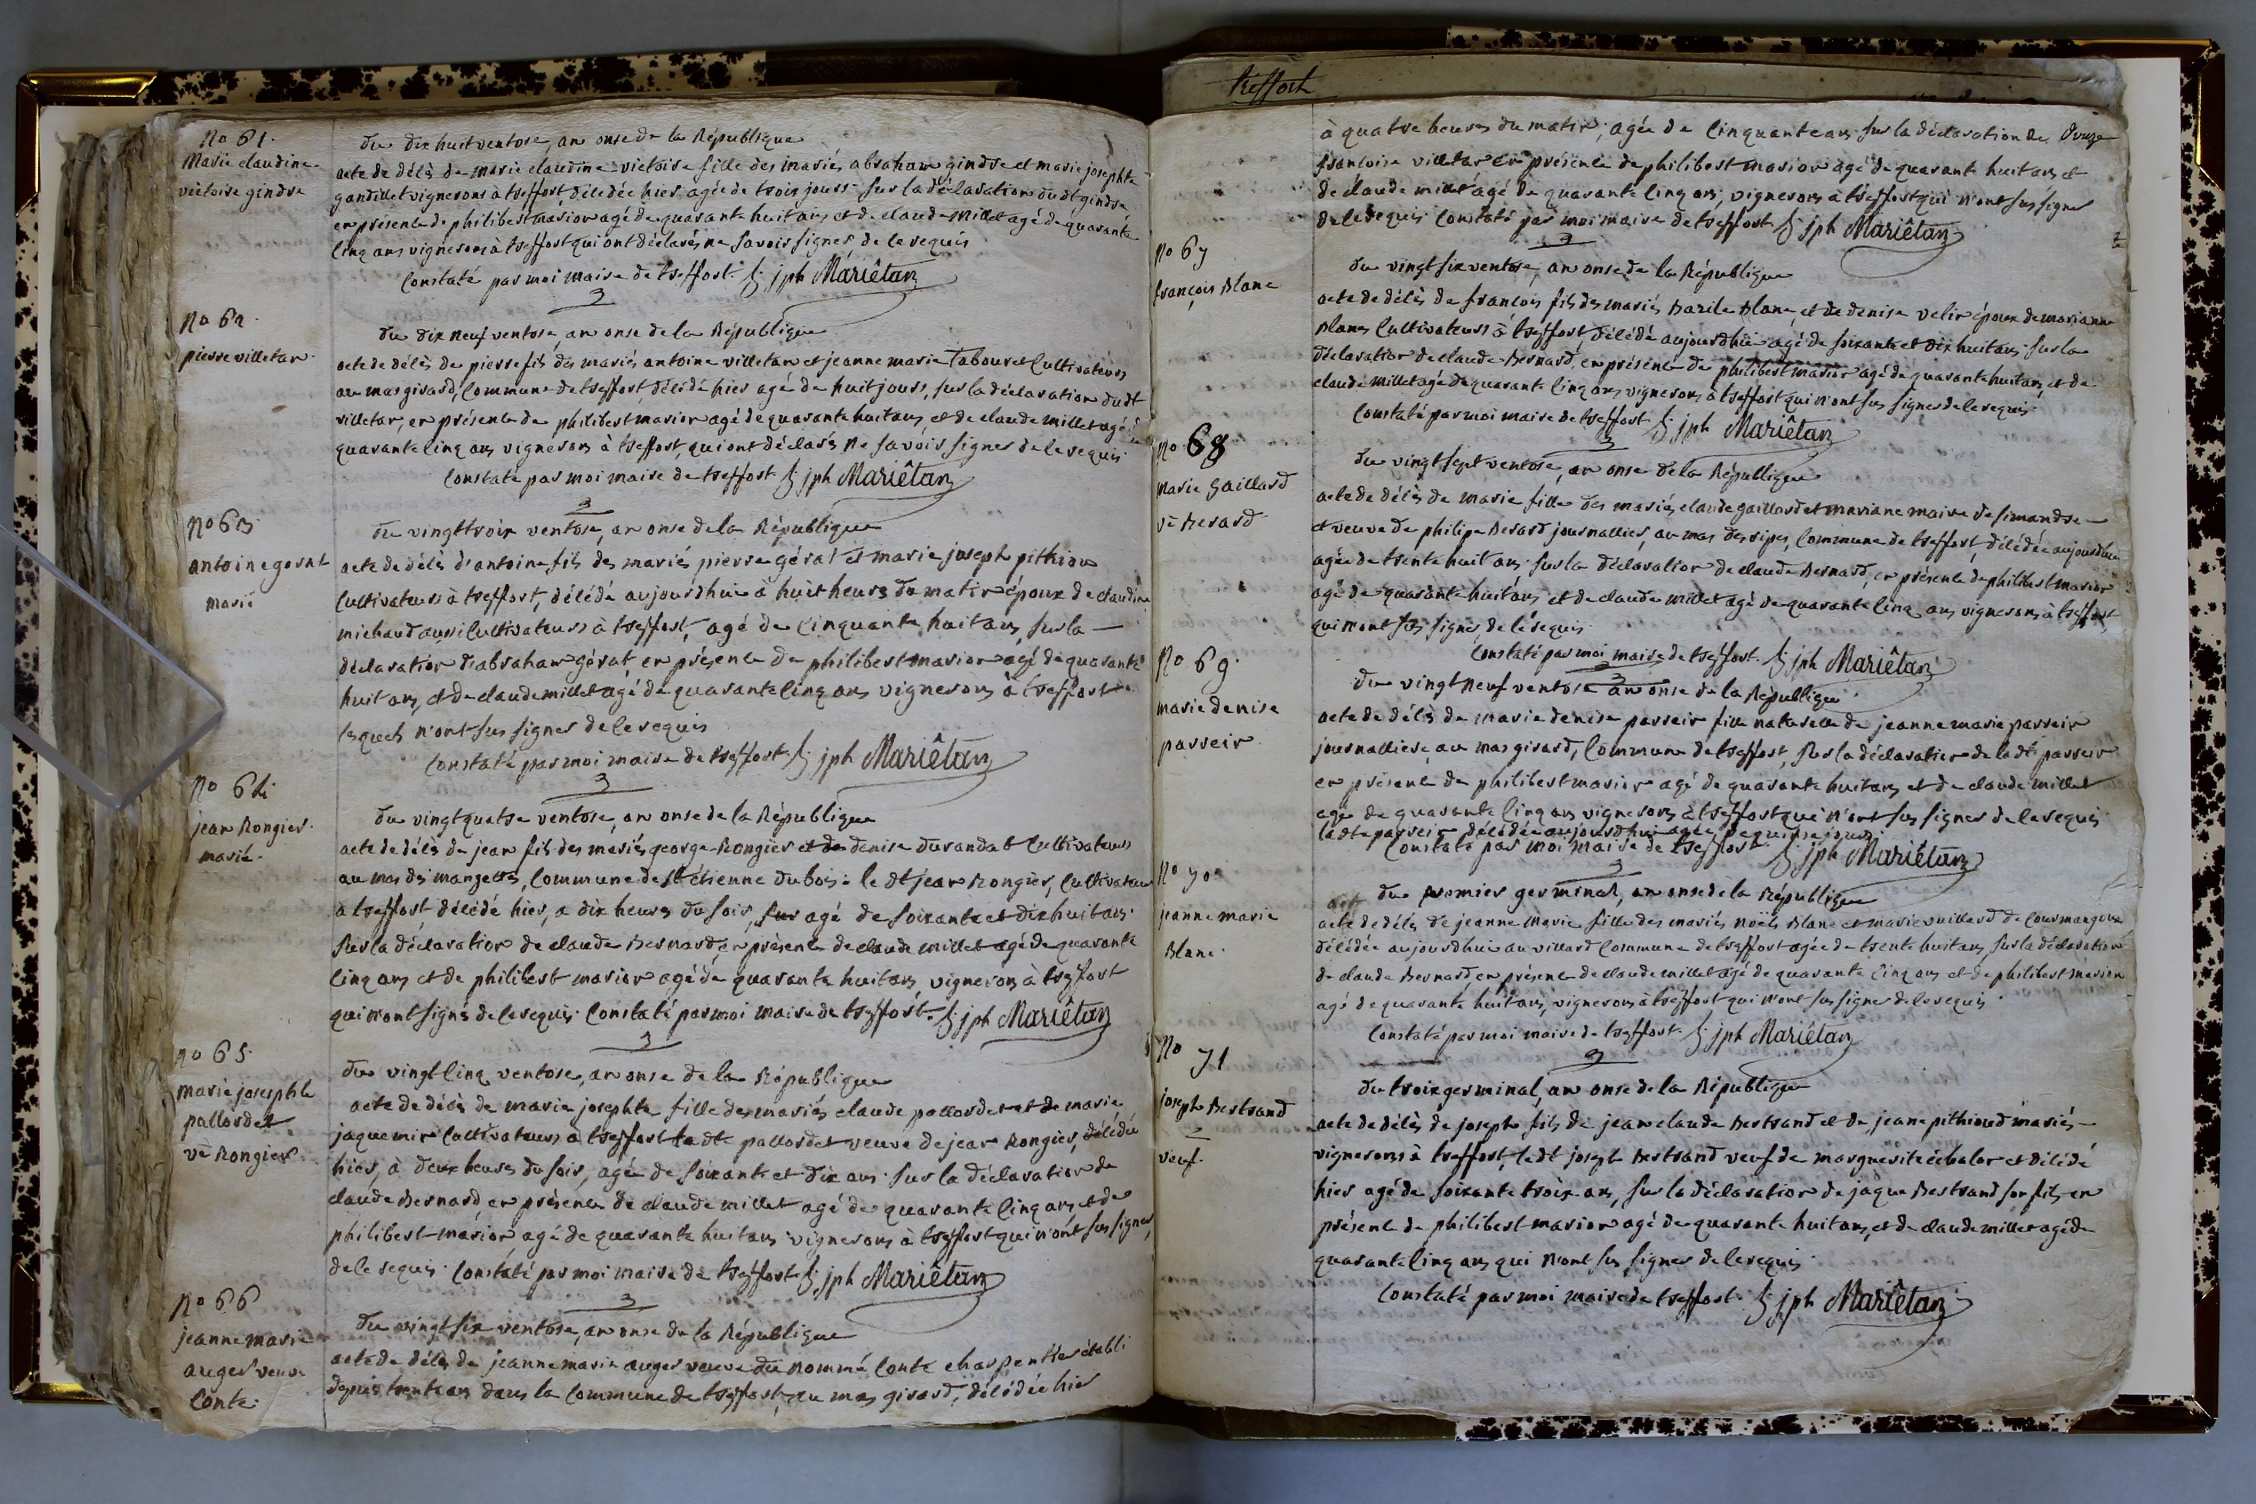 No 61.
Marie claudine
victoire gindre
du dix huit ventose, an onse de la République
acte de délès de marie claudine victoire fille des mariés abraham gindre et marie josephte
gandillet vignerons à treffort, délédée hier agée de trois jours sur la déclaration dudt gindre
en présente de philibert marion agé de quarante huit ans et de claude Millet agé de quarante
linq ans vignerons à treffort qui ont déclarés ne savoir signer de le requis
Constaté par moi maire de treffort. jph Mariêtan
No 62.
pierre villetan
du dix neuf ventose, an onse de la République
acte de délès de pierre fils des mariés antoine villetan et jeanne marie Tabouret Cultivateurs
au mas girard, Commune de treffort, délédé hier agé de huit jours, sur la déclaration dudt
villetan, en présente de philibert marion agé de quarante huit ans, et de claude millet agé de
quarante linq ans vignerons à treffort, qui ont déclarés ne savoir signer de le requis
Constaté par moi maire de treffort jph Mariêtan
No 63.
antoine gerat
marié
du vingt trois ventose, an onse de la République
acte de délès d'antoine fils des mariés pierre gérat et marie joseph pithion
Cultivateurs à treffort, délédé aujourdhui à huit heures du matin époux de claudine
michaud aussi Cultivateurs à treffort, agé de Cinquante huit ans, sur la
déclaration d'abraham gérat en présente de philibert marion agé de quarante
huit ans, et de claude millet agé de quarante linq ans vignerons à treffort
lesquels n'ont sus signer de le requis
Constaté par moi maire de treffort jph Mariêtan
No 64
jean Rongier
marié
du vingt quatre ventose, an onse de la République
acte de délès de jean fils des mariés george Rongier et de denise durandat Cultivateurs
au mas des mangettes, Commune de St étienne du bois: le dt jean Rongier, Cultivateur
à treffort, délédé hier, a dix heures du soir, agé de soixante et dix huit ans.
sur la déclaration de claude Bernard, en présente de claude millet agé de quarante
linq ans et de philibert marion agé de quarante huit ans, vignerons à treffort
qui n'ont signé de le requis. Constaté par moi maire de treffort. jph Mariêtan
No 65
marie josephte
pallordet
ve Rongier
du vingt linq ventose, an onse de la République
acte de délès de marie josephte fille des mariés claude pallordet et de marie
jaquemin Cultivateurs à treffort ladte pallordet veuve de jean Rongier, délédée
hier, à deux heures du soir, agée de soixante et dix ans sur la déclaration de
claude Bernard, en présente de claude millet agé de quarante linq ans, et de
philibert marion agé de quarante huit ans vignerons à treffort qui n'ont sus signer,
de le requis. Constaté par moi maire de treffort jph Mariêtan
No 66
jeanne marie
auger veuve
Conte
du vingt six ventose, an onse de la République
acte de délès de jeanne marie auger veuve du nommé Conte charpentier établi
depuis trente ans dans la Commune de treffort, au mas girard, délédée hier
treffort
à quatre heures du matin, agée de Cinquante ans sur la déclaration de
françoise villetan en présente de philibert marion agé de quarante huit ans et
de claude millet agé de quarante linq ans, vignerons à treffort qui n'ont sus signer
de le requis Constaté par moi maire de treffort jph Mariêtan
No 67
françois Blanc
du vingt six ventose, an onse de la République
acte de délès de françois fils des mariés Basile Blanc, et de denise velin époux de marianne
Blanc Cultivateurs à treffort, délédé aujourdhui agé de soixante et dix huit ans sur la
déclaration de claude Bernard, en présente de philibert marion agé de quarante huit ans, et de
claude millet agé de quarante linq ans, vignerons à treffort qui n'ont sus signer de le requis
Constaté par moi maire de treffort jph Mariêtan
No 68
marie gaillard
ve Berard
du vingt sept ventose, an onse de la République
acte de délès de marie fille des mariés claude gaillard et mariane maire de simandre
et veuve de philipe Berard journallier, au mas des sipes, Commune de treffort, délédée aujourdhui
agée de trente huit ans sur la déclaration de claude Bernard, en présente de philibert marion
agé de quarante huit ans et de claude millet agé de quarante linq ans vignerons à treffort,
qui n'ont sus signer, de le requis
Constaté par moi maire de treffort. jph Mariêtan
No 69.
marie denise
passeir
du vingt neuf ventose an onse de la République
acte de délès de marie denise passeir fille naturelle de jeanne marie passeir
journalliere au mas girard, Commune de treffort, sur la déclaration de la dte passeir
en présente de philibert marion agé de quarante huit ans et de claude millet
agé de quarante linq ans vignerons à treffort qui n'ont sus signer de le requis
ladte passeir délédée aujourdhui agée de quinse jours
Constaté par moi maire de treffort. jph Mariêtan
No 70
jeanne marie
Blanc
du premier germinal, an onse de la République
acte de délès de jeanne marie fille des mariés noëls Blanc et marie vuillard de Courmangoux
délédée aujourdhui au villard Commune de treffort agée de trente huit ans, sur la déclaration
de claude Bernard en présente de claude millet agé de quarante linq ans et de philibert marion
agé de quarante huit ans, vignerons à treffort qui n'ont sus signer de le requis
Constaté par moi maire de treffort jph Mariêtan
No 71
joseph Bertrand
veuf
du trois germinal, an onse de la République
acte de délès de joseph fils de jean claude Bertrand et de jeane pithioud mariés
vignerons à treffort, ledt joseph Bertrand veuf de marguerite échalor et délédé
hier agé de soixante trois ans, sur la déclaration de jaque Bertrand son fils, en
présente de philibert marion agé de quarante huit ans, et de claude millet agé de
quarante linq ans qui n'ont sus signer de le requis
Constaté par moi maire de treffort jph Mariêtan